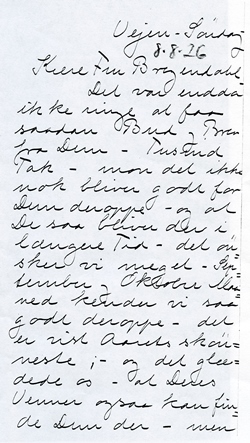 Vejen - Søndag
8.8.26
Kære Fru Brøndahl
Det var endda
ikke ringe at faa
saadan Bud, Brev
fra Dem - Tusind
Tak - mon det ikke
nok bliver godt for
Dem deroppe - og at
De saa bliver der i
længere Tid - det øn-
sker vi meget - Sep-
tember, Oktober Maa-
ned kender vi saa
godt deroppe - det
er vist Aarets skøn-
neste ; - og det glæ-
dede os - at Deres
Venner ogsaa kan fin-
de Dem der - men